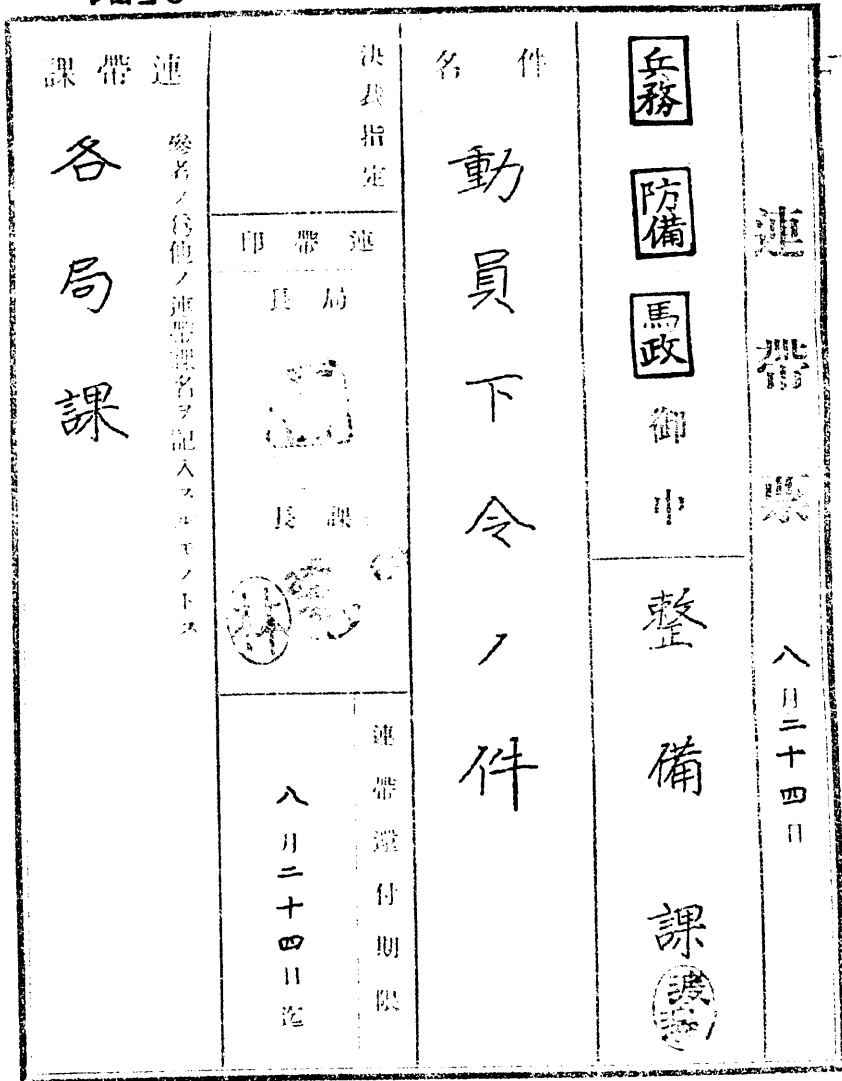 連帶票 八月二十四日
兵務 防備 馬政 御中
整備課
件名
動員下令ノ件
決裁指定
連帶印
局長
課長
林
連帶還付期限
八月二十四日迄
參考ノ爲他ノ連帶課名ヲ記入スルモノトス
連帶課
各局課